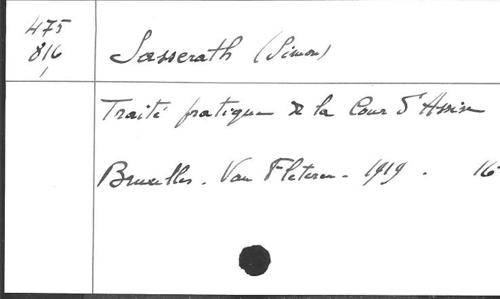 475
816
Sasserath (Simon)
Traité pratique de la Cour d'Assises
Bruxelles. Van Fleteren - 1919. 16